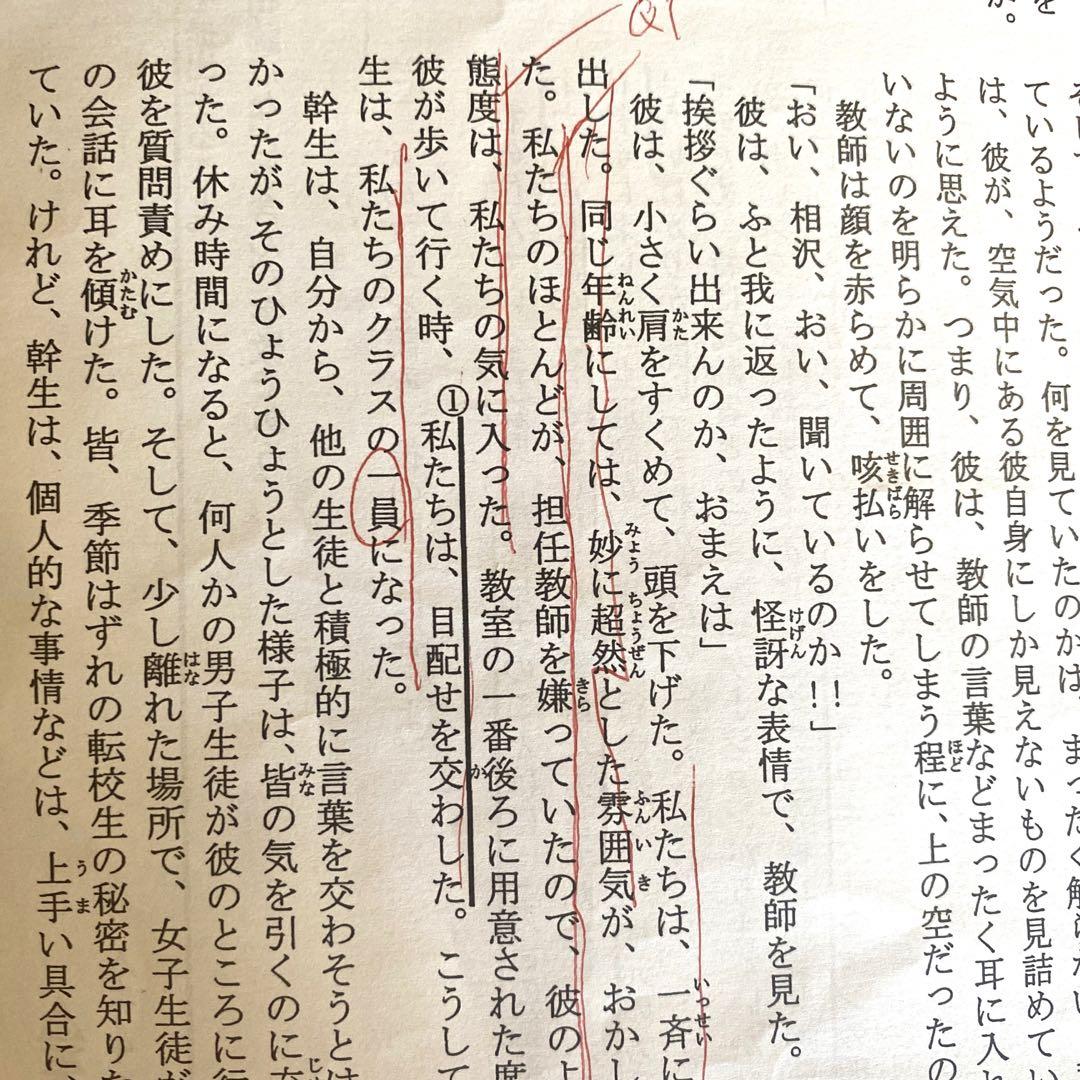 Q1
ているようだった。何を見ていたのかは、まったく解らない
は、彼が、空気中にある彼自身にしか見えないものを見詰めてい
ように思えた。つまり、彼は、教師の言葉などまったく耳に入れ
いないのを明らかに周囲に解らせてしまう程に、上の空だったの
教師は顔を赤らめて、咳払いをした。
「おい、相沢、おい、聞いているのか!!」
彼は、ふと我に返ったように、怪訝な表情で、教師を見た。
「挨拶ぐらい出来んのか、おまえは」
彼は、小さく肩をすくめて、頭を下げた。私たちは、一斉に
出した。同じ年齢にしては、妙に超然とした雰囲気が、おかし
た。私たちのほとんどが、担任教師を嫌っていたので、彼のよ
態度は、私たちの気に入った。教室の一番後ろに用意された席
彼が歩いて行く時、①私たちは、目配せを交わした。こうして
生は、私たちのクラスの一員になった。
幹生は、自分から、他の生徒と積極的に言葉を交わそうとは
かったが、そのひょうひょうとした様子は、皆の気を引くのに充
った。休み時間になると、何人かの男子生徒が彼のところに行
彼を質問責めにした。そして、少し離れた場所で、女子生徒が
の会話に耳を傾けた。皆、季節はずれの転校生の秘密を知りた
ていた。けれど、幹生は、個人的な事情などは、上手い具合に、